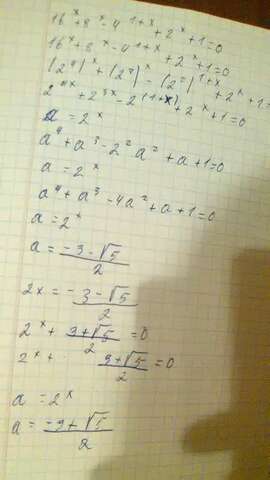 16^x+8^x-4^(1+x)+2^x+1=0
16^x+8^x-4^(1+x)+2^x+1=0
(2^4)^x+(2^3)^x-(2^2)^(1+x)+2^x+1=
2^(4x)+2^(3x)-2^(2(1+x))+2^x+1=0
a=2^x
a^4+a^3-2^2a^2+a+1=0
a=2^x
a^4+a^3-4a^2+a+1=0
a=2^x
a=(-3-√5)/2
2x=(-3-√5)/2
2^x+(3+√5)/2=0
2^x+(3+√5)/2=0
a=2^x
a=(-3+√5)/2